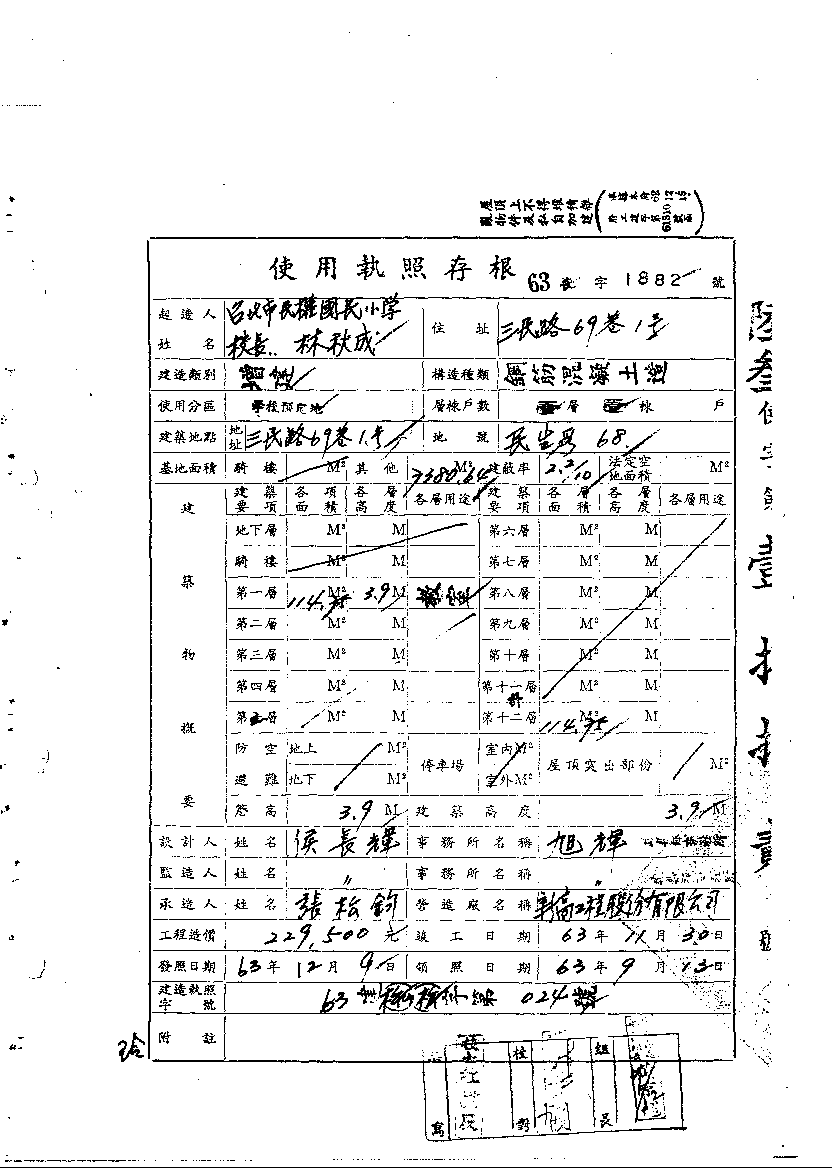 屋頂上不得堆積雜
物件及私自加建
使用執照存根 63 使 字 1882 號
起造人姓名 台北市民權國民小學校長 林秋成 住址 三民路69巷1号
建造類別 增建 構造種類 鋼筋混凝土造
使用分區 學校預定地 層棟戶數 層 棟 戶
建築地點 地址 三民路69巷1号 地號 民生段 68
基地面積 騎樓 M² 其他 7380.64 M² 建蔽率 2.2/10 法定空地面積 M²
建築要項 各項面積 各層高度 各層用途 建築要項 各層面積 各層高度 各層用途
地下層 M² M 第六層 M² M
騎樓 M² M 第七層 M² M
第一層 114.75 M² 3.9 M 第八層 M² M
第二層 M² M 第九層 M² M
第三層 M² M 第十層 M² M
第四層 M² M 第十一層 M² M
第五層 M² M 第十二層 計 114.75 M² M
建築物概要
防空避難 地上 M² 地下 M² 停車場 室內M² 室外M² 屋頂突出部份 M²
簷高 3.9 M 建築高度 3.9 M
設計人 姓名 侯長輝 事務所名稱 旭輝
監造人 姓名 〃 事務所名稱 〃
承造人 姓名 張松鈞 營造廠名稱 工程股份有限公司
工程造價 229,500 元 竣工日期 63年11月30日
發照日期 63年12月9日 領照日期 63年9月13日
建造執照字號 63 024
附註
校對
組長
寫
陸叁使字第壹
號